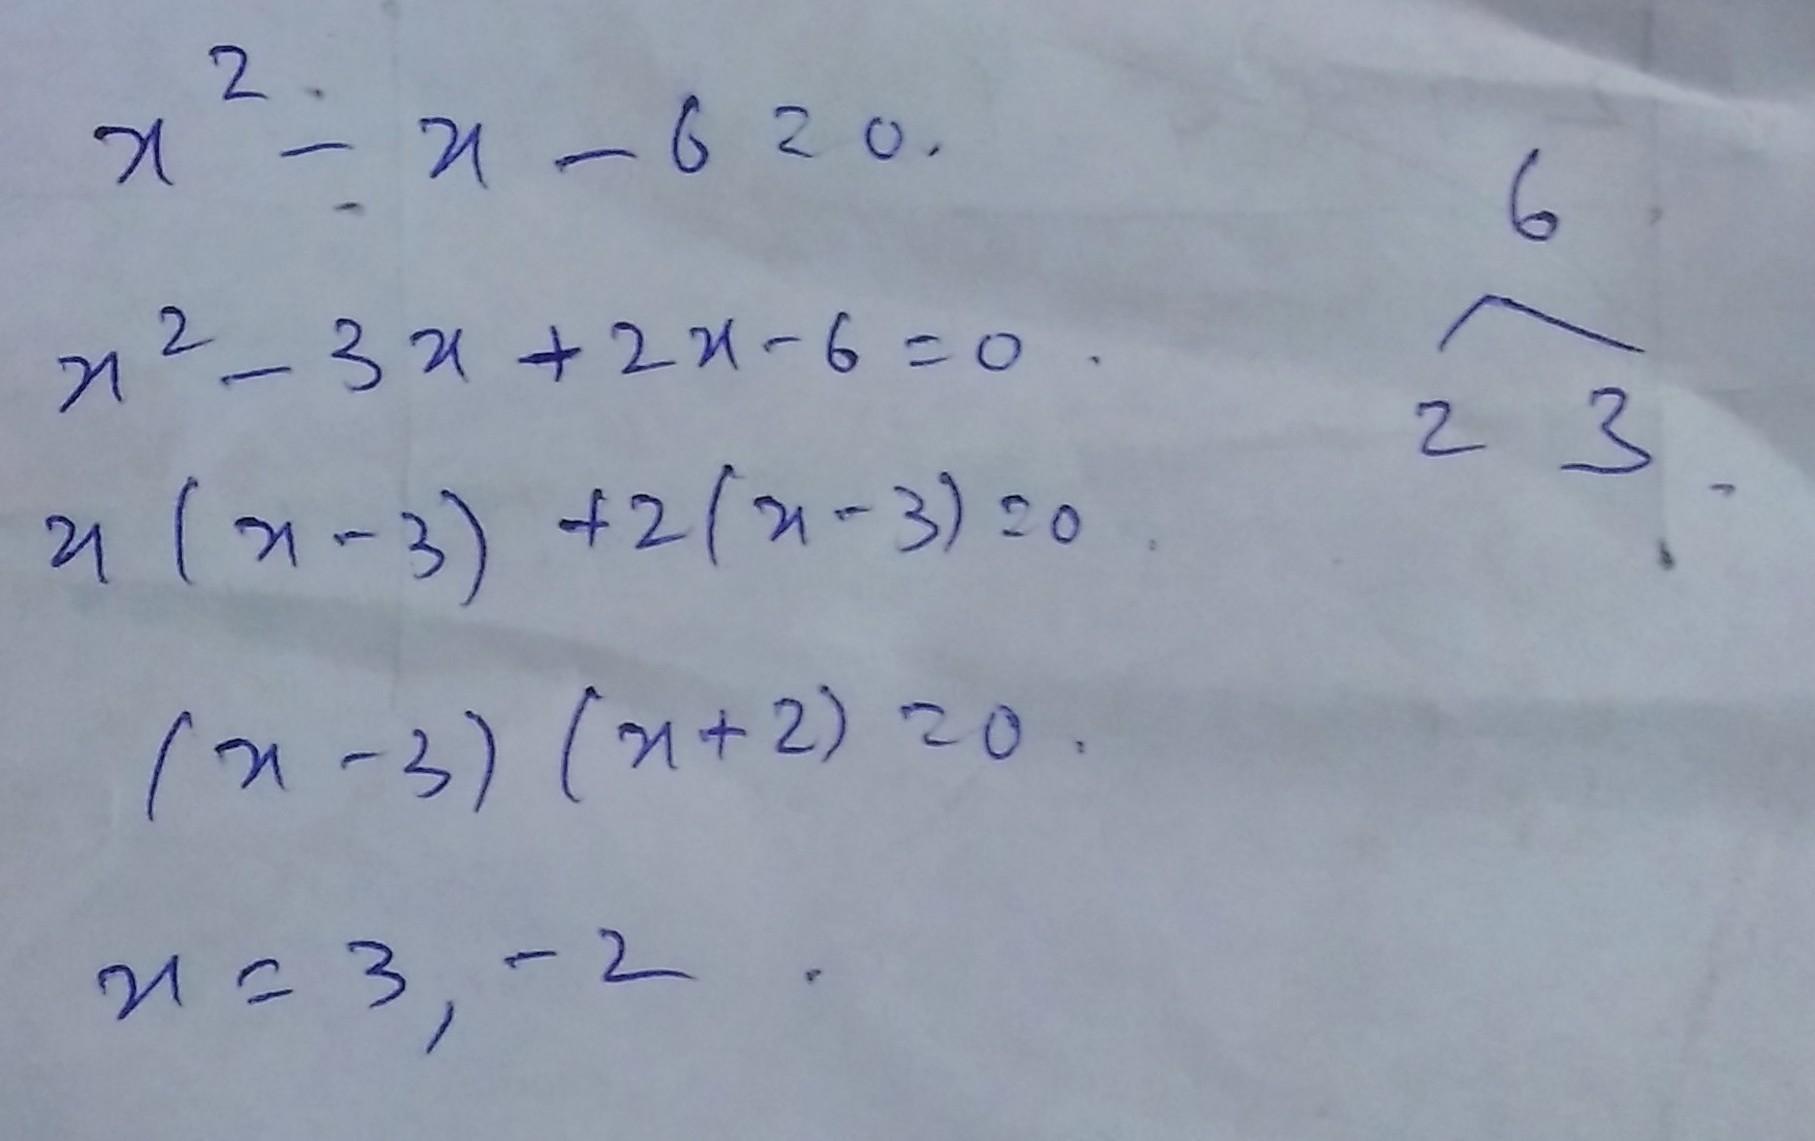 x² - x - 6 = 0.
x² - 3x + 2x - 6 = 0.
x (x - 3) + 2(x - 3) = 0.
(x - 3) (x + 2) = 0.
x = 3, -2.
6
2 3